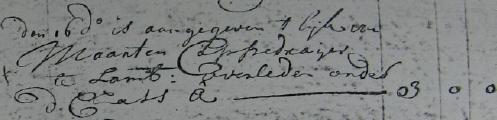 den 16 do is aangegeven t lijk van
Maarten
Lamb: overleden onder
d. Class a 03 0 0